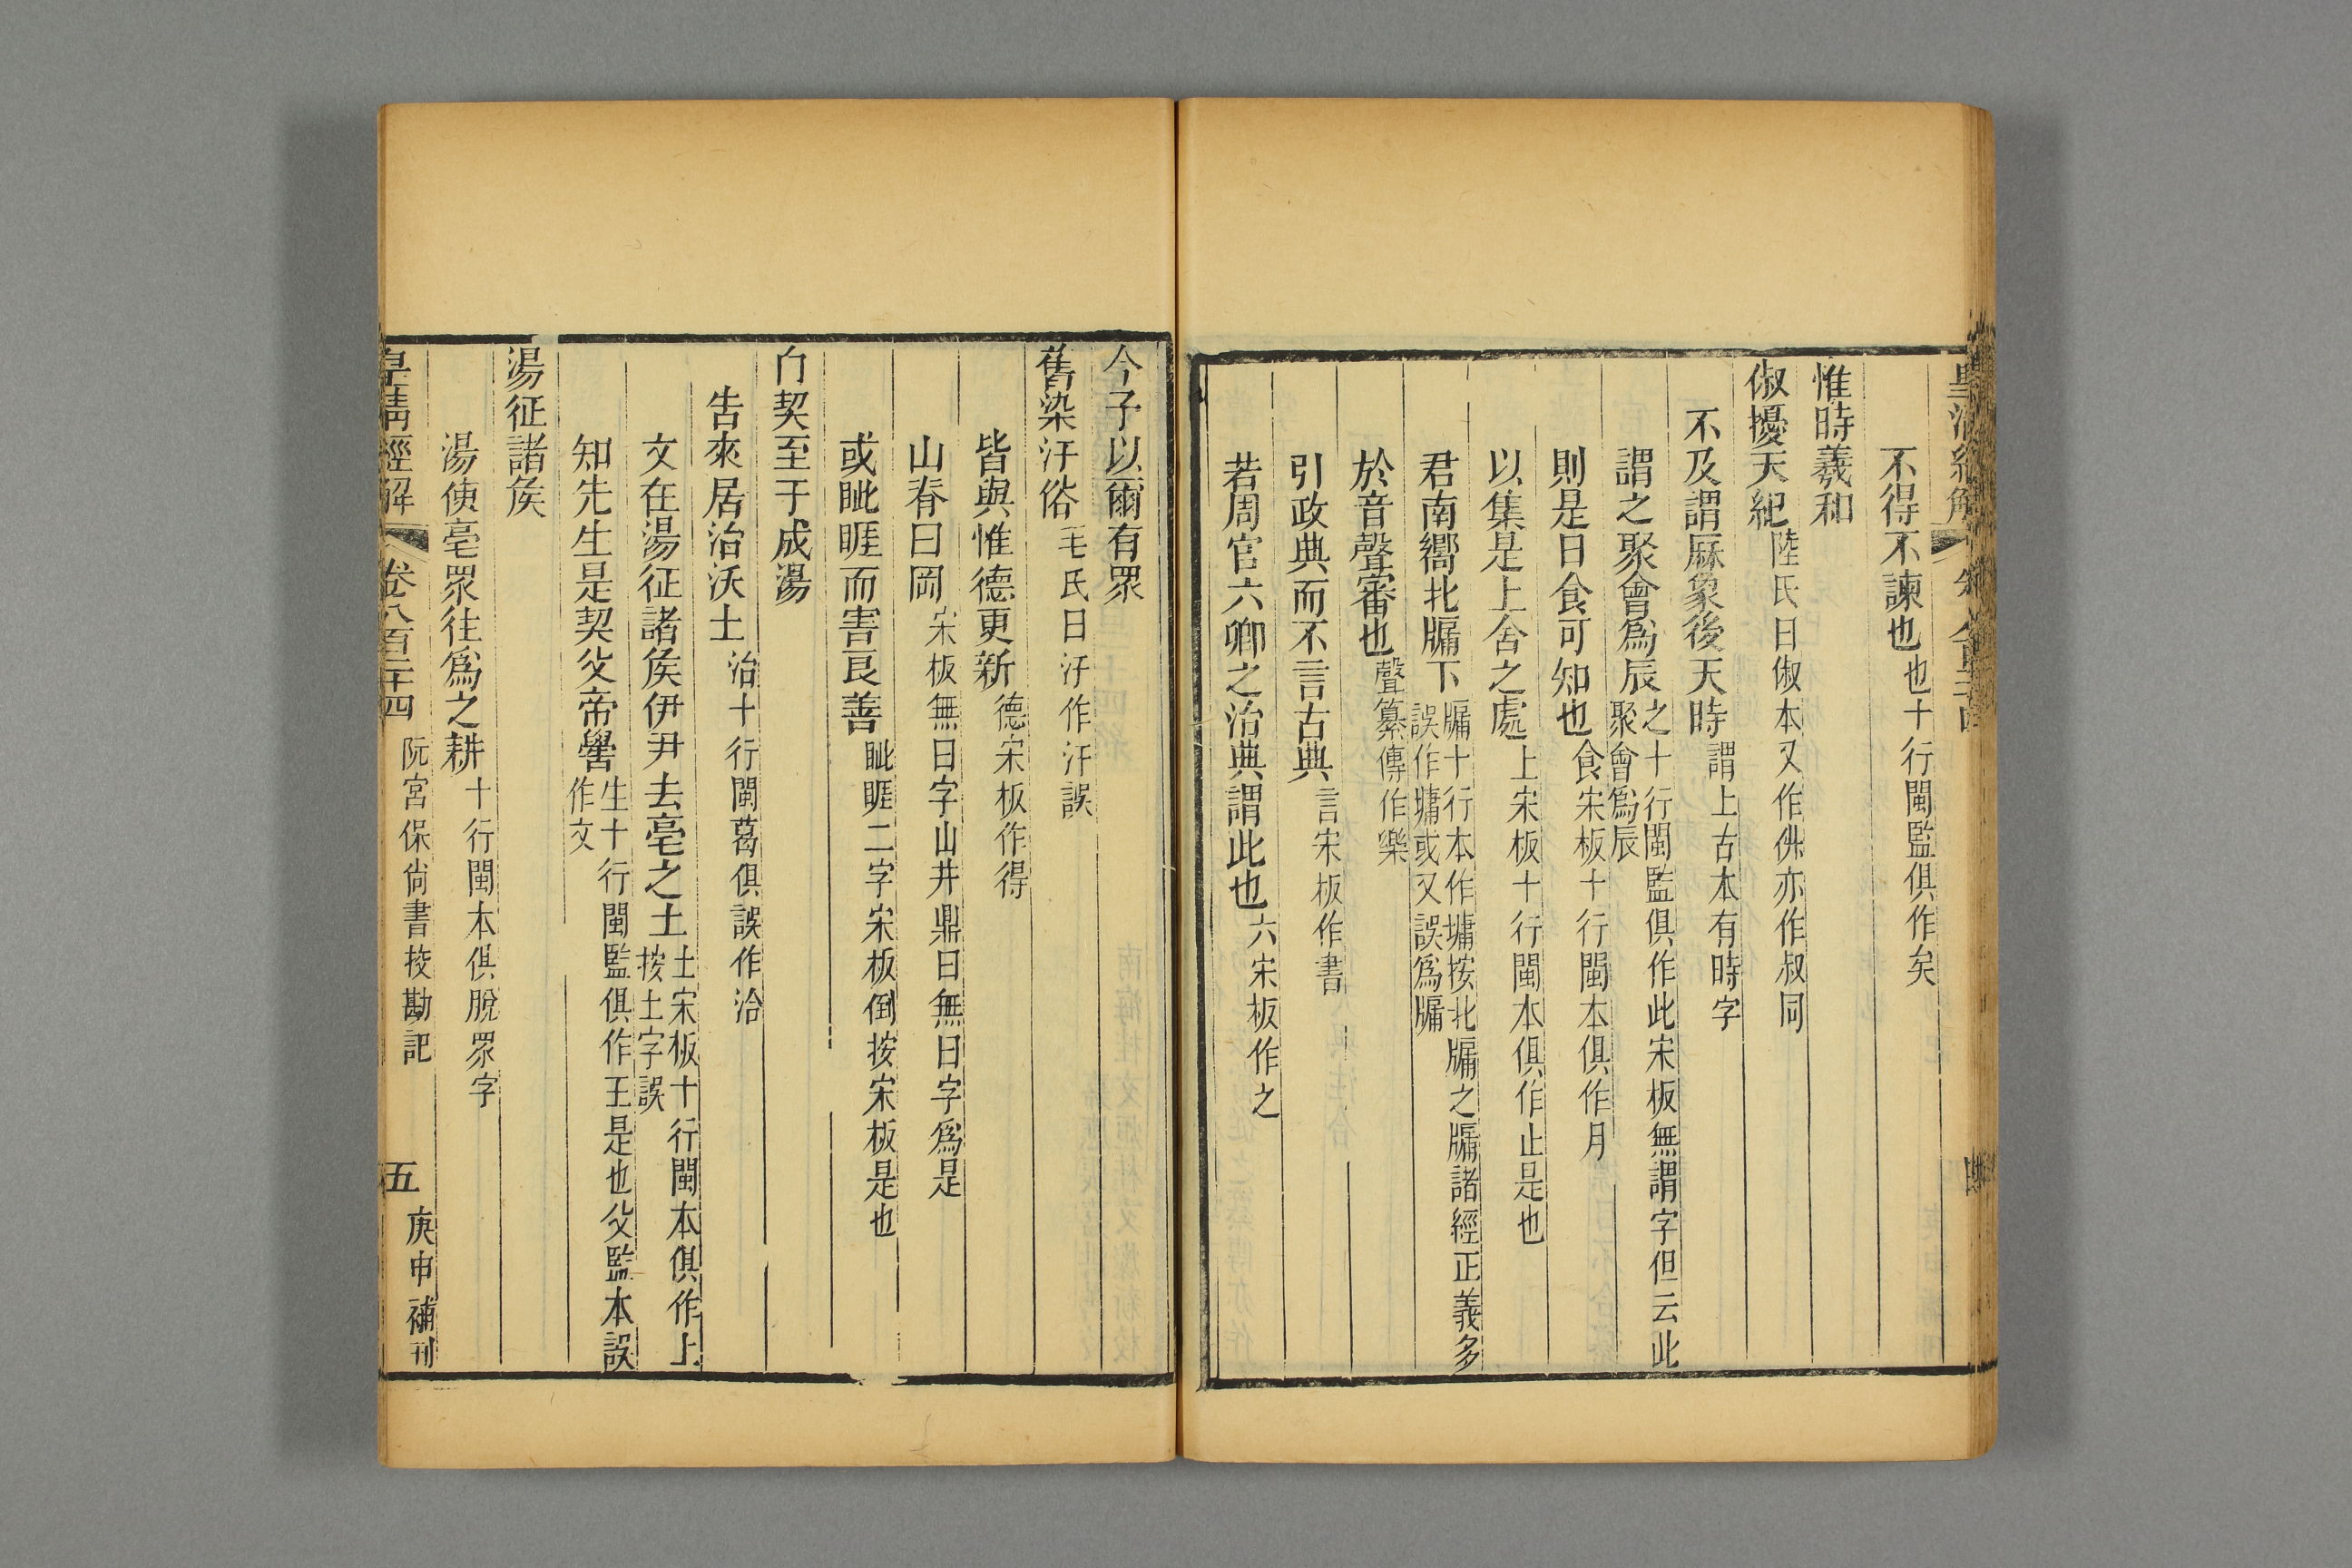 皇清經解 卷八百二十四
不得不諫也也十行閩監俱作矣
惟時羲和
俶擾天紀陸氏曰俶本又作佛亦作叔同
不及謂厤象後天時謂上古本有時字
謂之聚會爲辰之十行閩監俱作此宋板無謂字但云此
聚會爲辰
則是日食可知也食宋板十行閩本俱作月
以集是上舍之處上宋板十行閩本俱作止是也
君南嚮北牖下牖十行本作墉按北牖之牖諸經正義多
誤作墉或又誤爲牖
於音聲審也聲纂傳作樂
引政典而不言古典言宋板作書
若周官六卿之治典謂此也六宋板作之
今予以爾有眾
舊染汙俗毛氏曰汙作汗誤
皆與惟德更新德宋板作得
山脊曰岡宋板無曰字山井鼎曰無曰字爲是
或眦睚而害良善眦睚二字宋板倒按宋板是也
自契至于成湯
告來居治沃土治十行閩葛俱誤作洽
文在湯征諸矦伊尹去亳之土土宋板十行閩本俱作上
按土字誤
知先生是契父帝嚳生十行閩監俱作王是也父監本誤
作文
湯征諸矦
湯使亳眾往爲之耕十行閩本俱脫眾字
皇清經解 卷八百二十四 阮宮保尙書挍勘記 五 庚申補刊